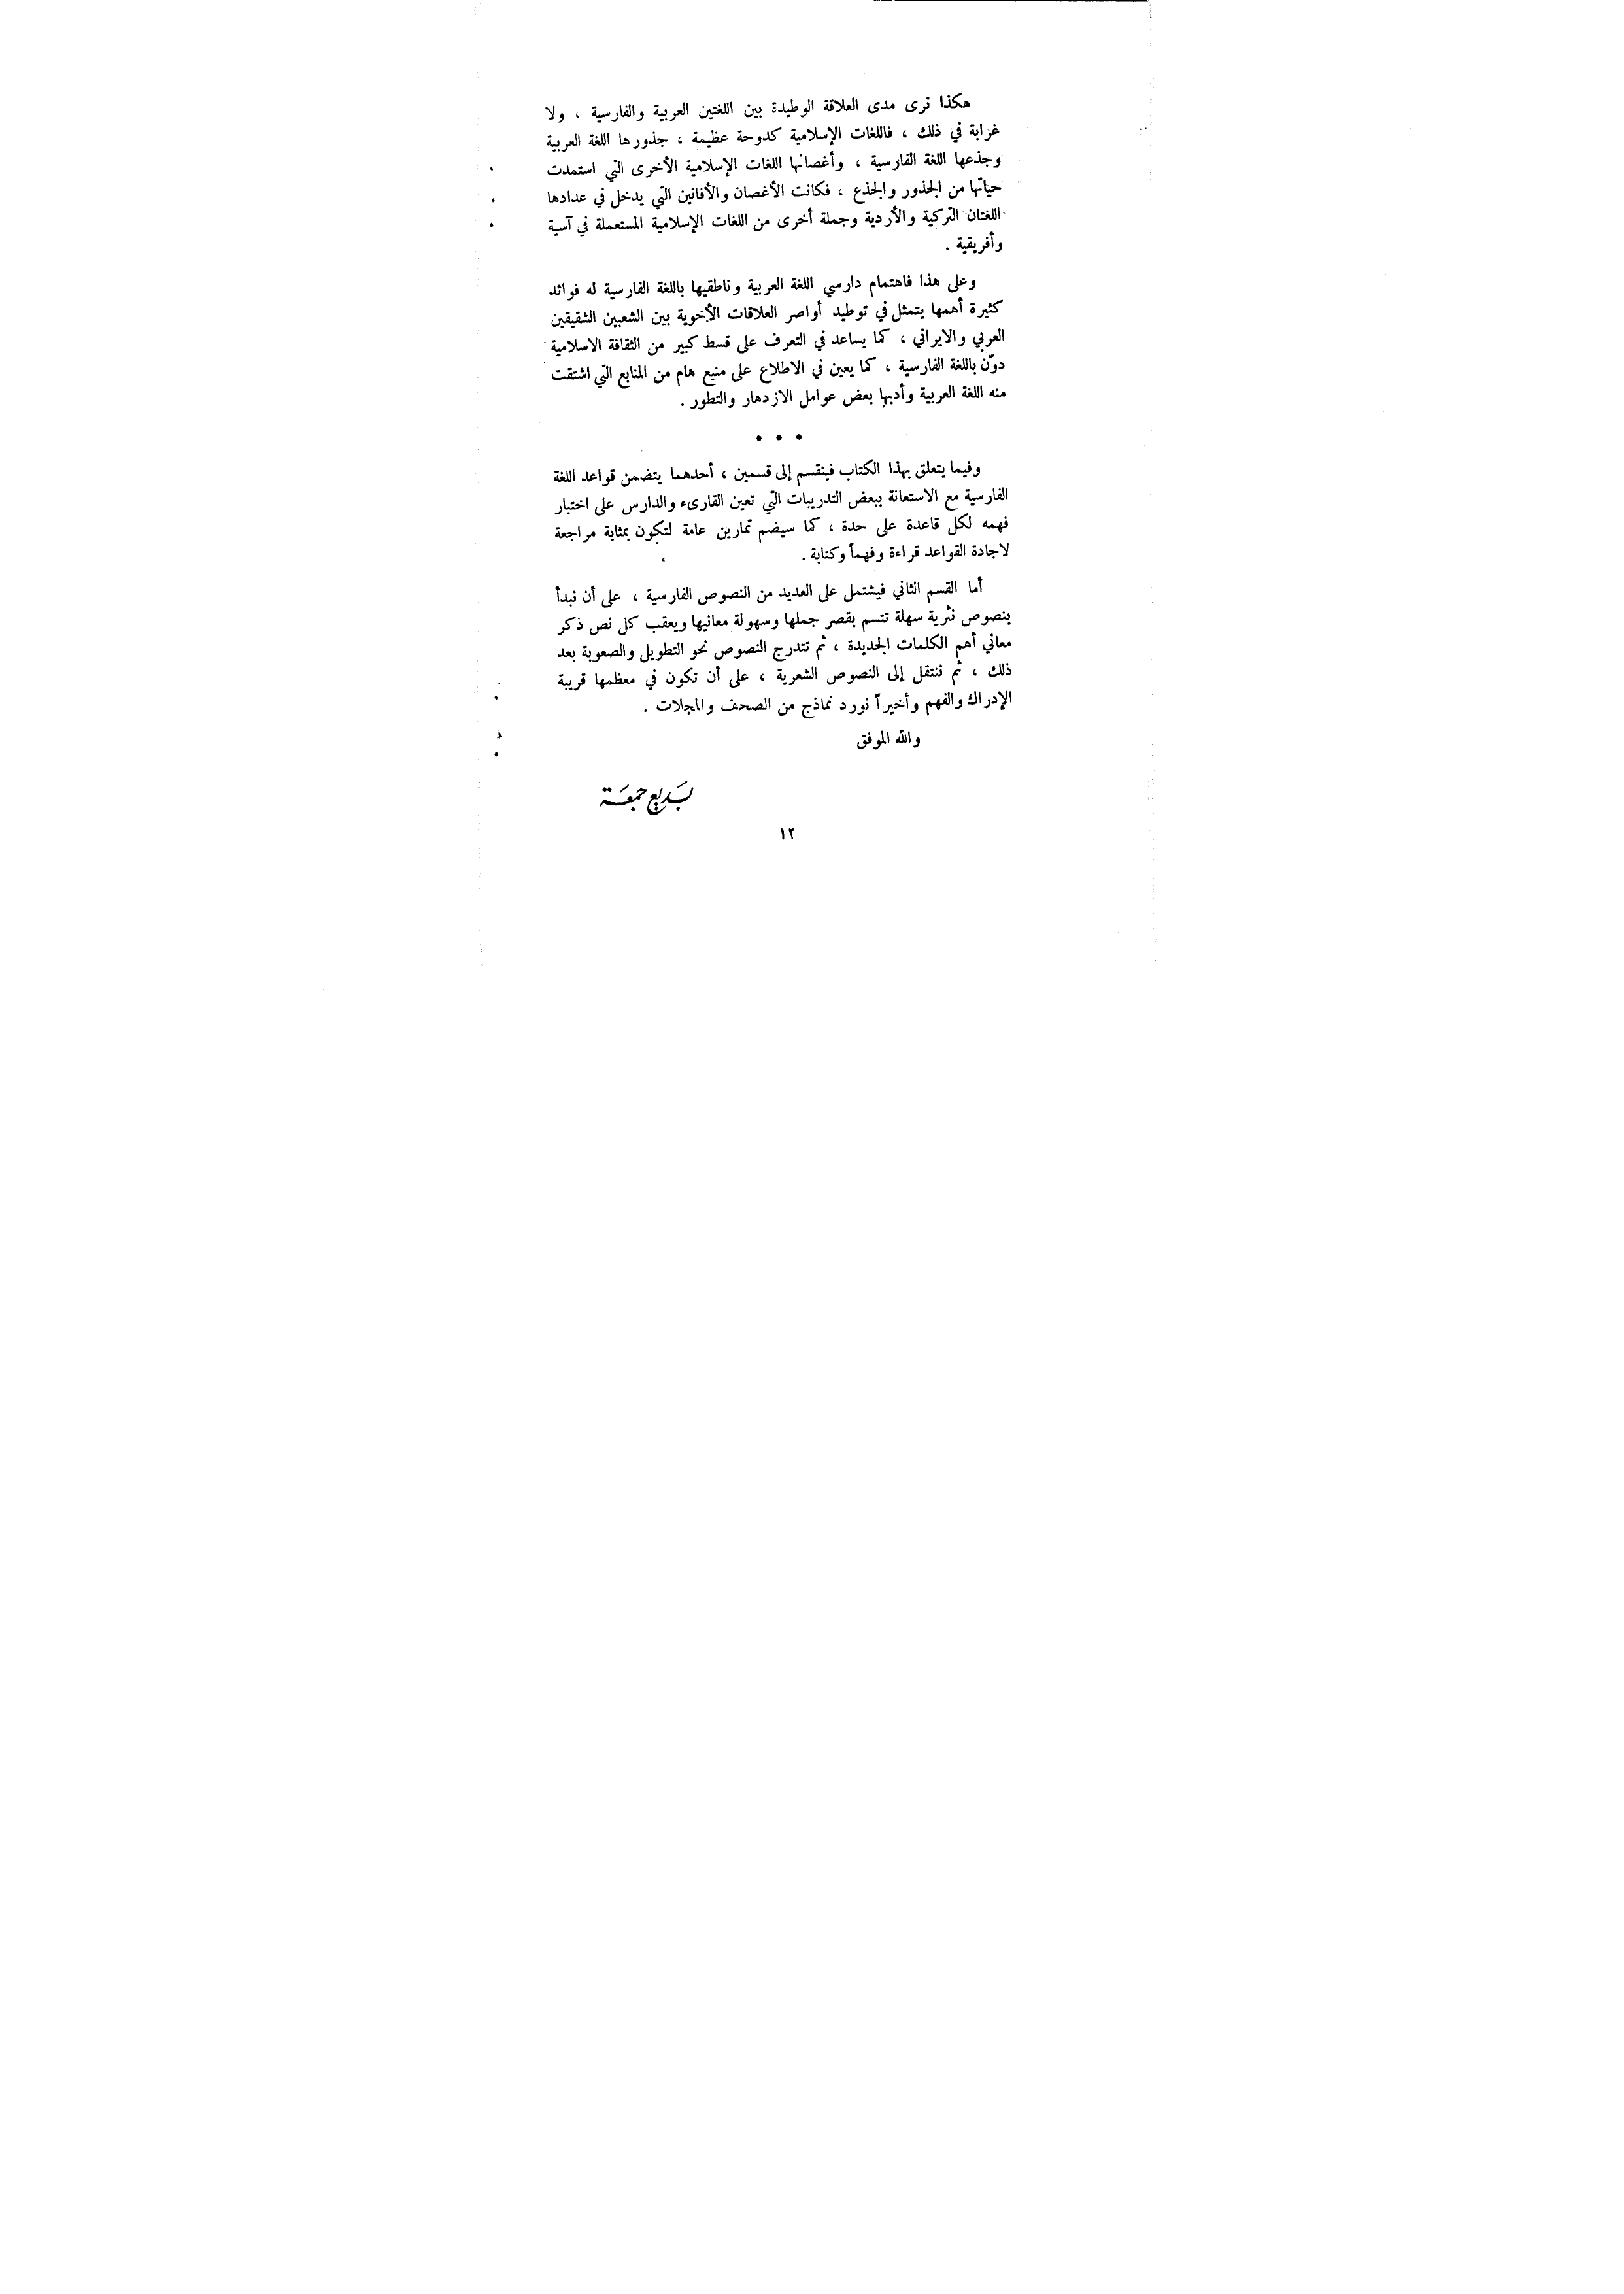 هكذا نرى مدى العلاقة الوطيدة بين اللغتين العربية والفارسية ، ولا
غرابة في ذلك ، فاللغات الإسلامية كدوحة عظيمة ، جذورها اللغة العربية
وجذعها اللغة الفارسية ، وأغصانها اللغات الإسلامية الأخرى التي استمدت
حياتها من الجذور والجذع ، فكانت الأغصان والأفانين التي يدخل في عدادها
اللغتان التركية والأردية وجملة أخرى من اللغات الإسلامية المستعملة في آسية
وأفريقية .
وعلى هذا فاهتمام دارسي اللغة العربية وناطقيها باللغة الفارسية له فوائد
كثيرة أهمها يتمثل في توطيد أواصر العلاقات الأخوية بين الشعبين الشقيقين
العربي والايراني ، كما يساعد في التعرف على قسط كبير من الثقافة الاسلامية
دوّن باللغة الفارسية ، كما يعين في الاطلاع على منبع هام من المنابع التي اشتقت
منه اللغة العربية وأدبها بعض عوامل الازدهار والتطور .
• • •
وفيما يتعلق بهذا الكتاب فينقسم إلى قسمين ، أحدهما يتضمن قواعد اللغة
الفارسية مع الاستعانة ببعض التدريبات التي تعين القارىء والدارس على اختبار
فهمه لكل قاعدة على حدة ، كما سيضم تمارين عامة لتكون بمثابة مراجعة
لاجادة القواعد قراءة وفهماً وكتابة .
أما القسم الثاني فيشتمل على العديد من النصوص الفارسية ، على أن نبدأ
بنصوص نثرية سهلة تتسم بقصر جملها وسهولة معانيها ويعقب كل نص ذكر
معاني أهم الكلمات الجديدة ، ثم تتدرج النصوص نحو التطويل والصعوبة بعد
ذلك ، ثم ننتقل إلى النصوص الشعرية ، على أن تكون في معظمها قريبة
الإدراك والفهم وأخيراً نورد نماذج من الصحف والمجلات .
والله الموفق
بَديع جمعَة
١٢